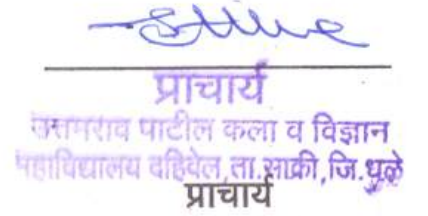 प्राचार्य
उत्तमराव पाटील कला व विज्ञान
महाविद्यालय दहिवेल,ता.साक्री,जि.धुळे
प्राचार्य